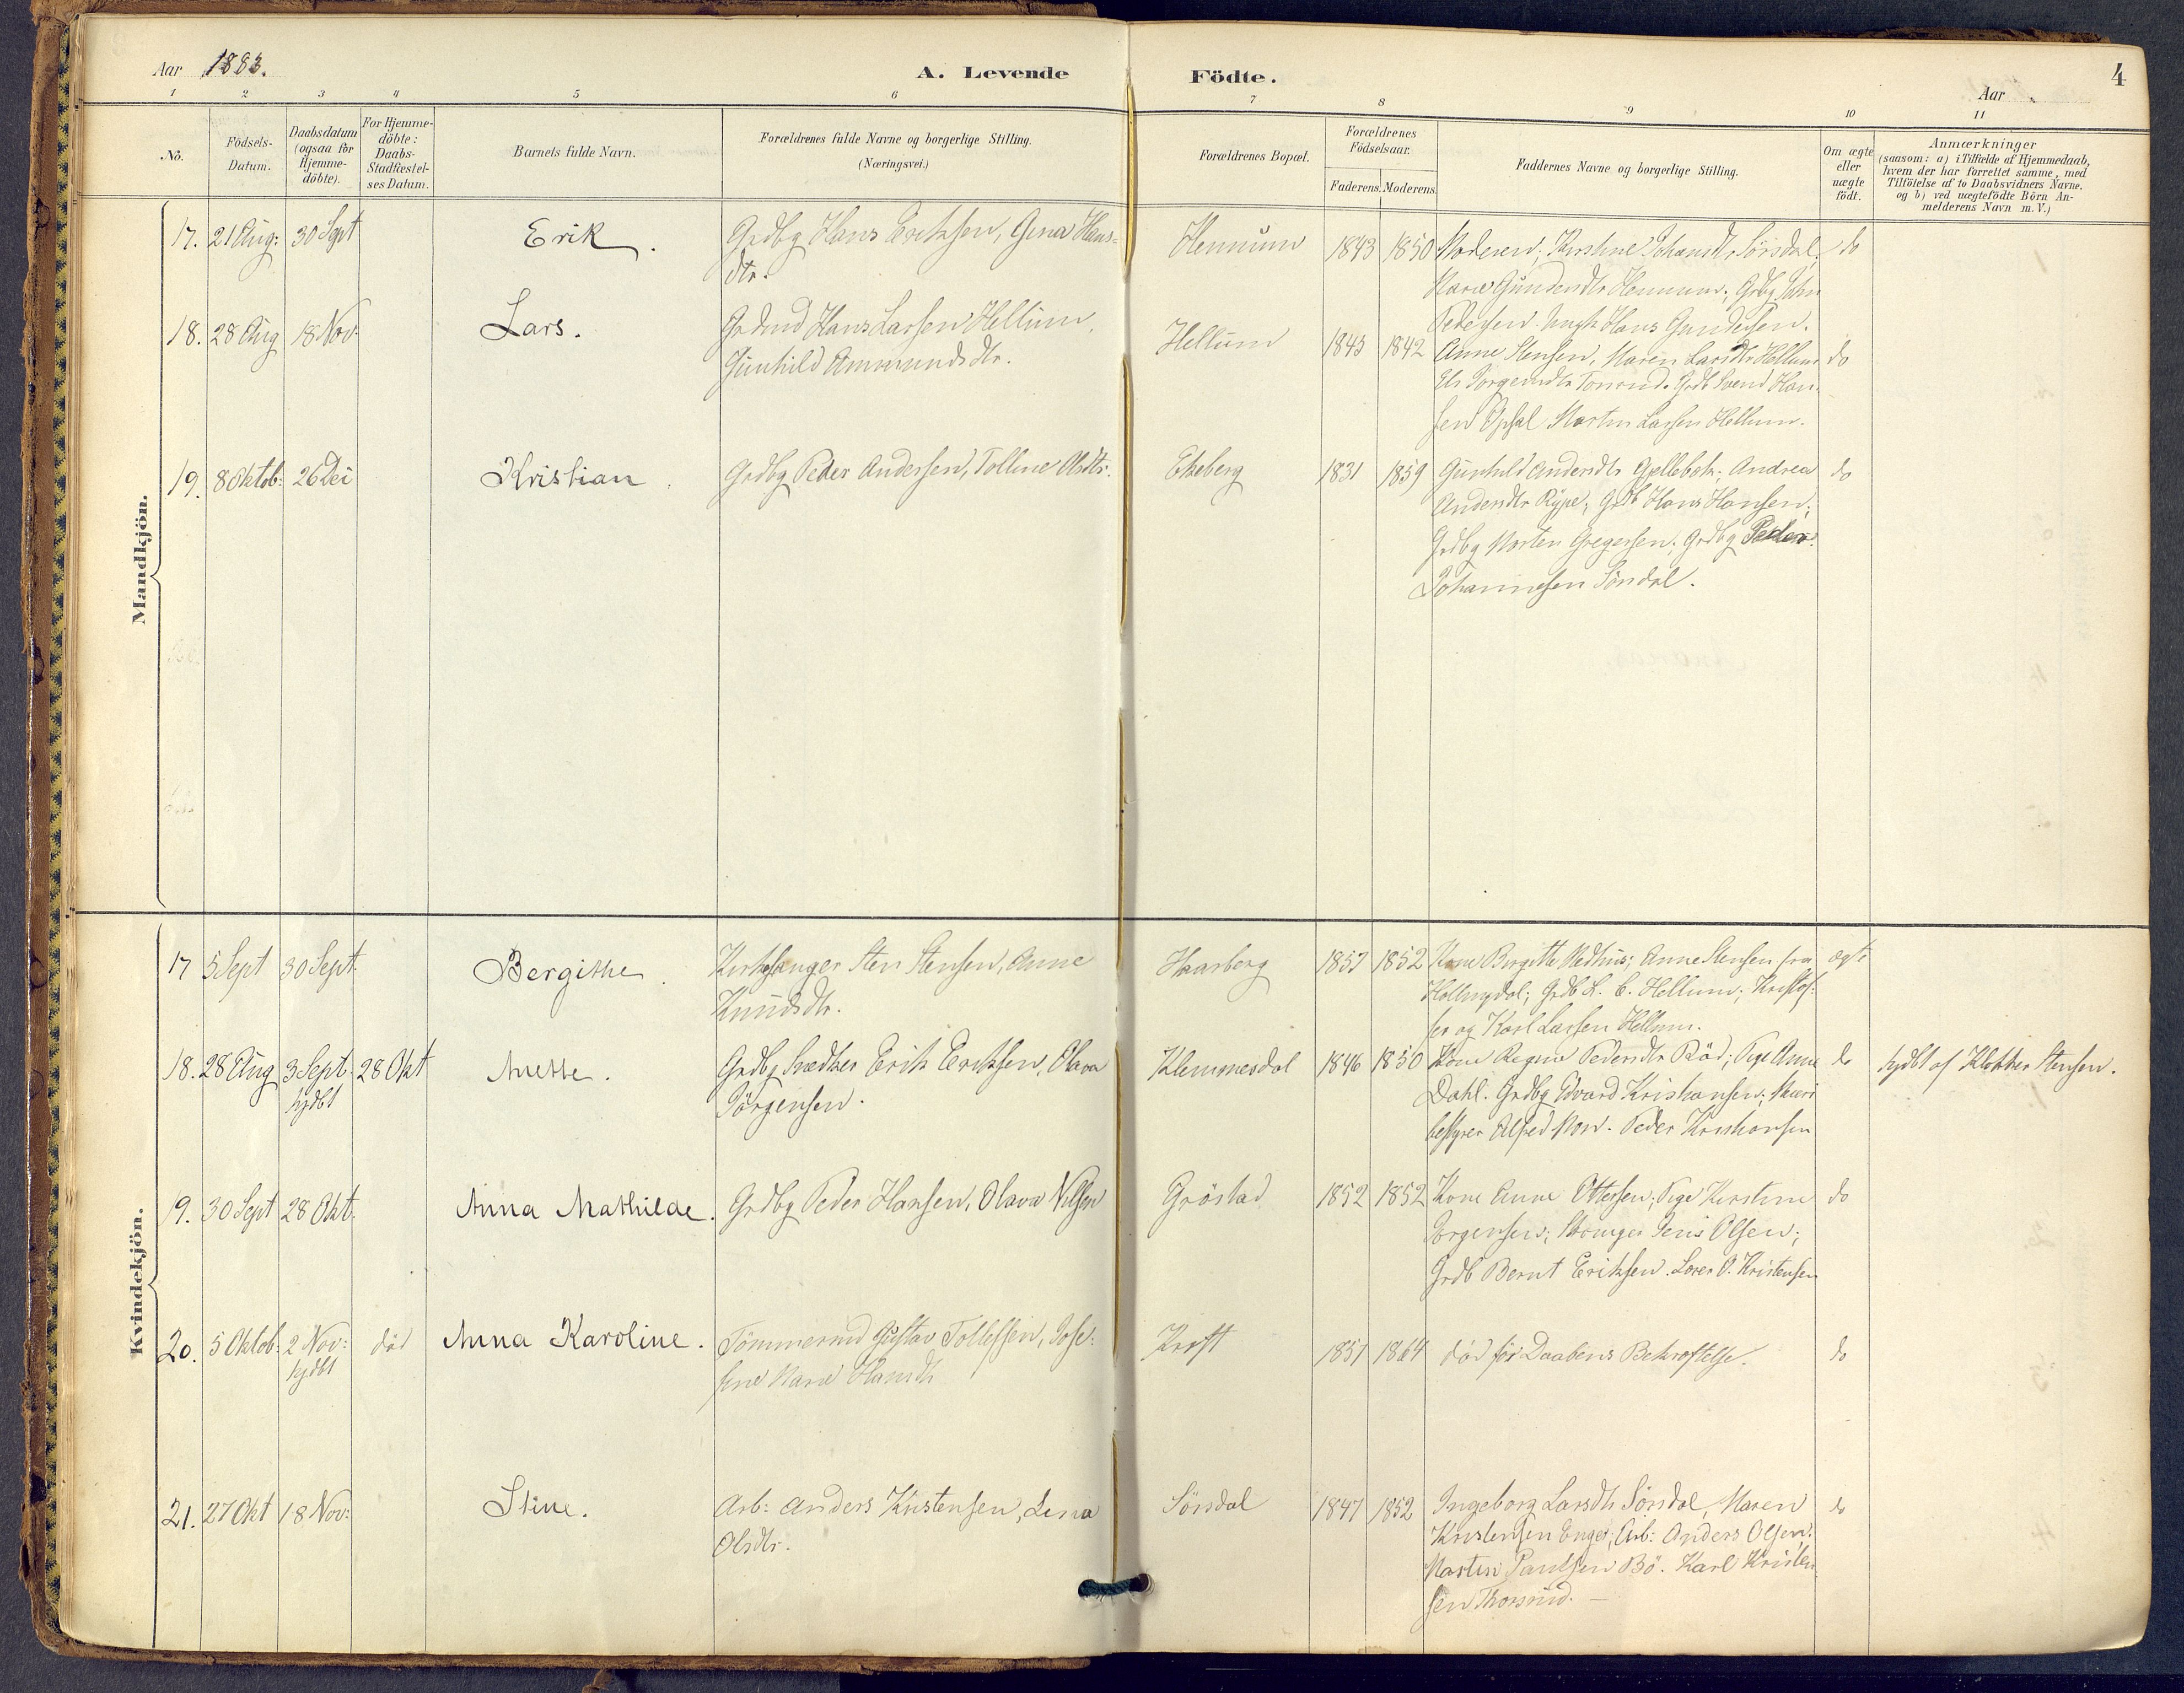 Aar 1883.
A. Levende Födte.
4
Aar
1 2 3 4 5 6 7 8 9 10 11
No.
Födsels-
Datum.
Daabsdatum
(ogsaa for
Hjemme-
döbte).
For Hjemme-
döbte:
Daabs-
Stadfæstel-
ses Datum.
Barnets fulde Navn.
Forældrenes fulde Navne og borgerlige Stilling.
(Næringsvei.)
Forældrenes Bopæl.
Forældrenes
Födselsaar.
Faderens. Moderens.
Faddernes Navne og borgerlige Stilling.
Om ægte
eller
uægte
födt.
Anmærkninger
(saasom: a) i Tilfælde af Hjemmedaab,
hvem der har forrettet samme, med
Tilföielse af to Daabsvidners Navne,
og b) ved uægtefödte Börn An-
melderens Navn m. V.)
Mandkjön.
17. 21 Aug: 30 Sept Erik. Grdbg Hans Eriksen, Gina Hans=
dtr.
Hennum 1843 1850 Moderen; Kirstine Johansdtr Sörsdal, do
Marie Gundersdtr Hennum; Grdbg John
Pedersen. Ungk Hans Gundersen.
18. 28 Aug 18 Nov: Lars. Grdmd Hans Larsen Hellum,
Gunhild Ammundsdtr.
Hellum 1843 1842 Anne Stensen, Maren Larsdtr Hellum do
Jörgensdtr Grdb Svend Han-
sen Opsal Martin Larsen Hellum.
19. 8 Oktob: 26 Dec Kristian. Grdbg Peder Andersen, Tolline Olsdtr.
Ekeberg 1831 1859 Gunhild Andersdtr Gjellebek; Andrea do
Andersdtr Rype; Grdb Hans Hansen;
Grdbg Morten Gregersen; Grdbg Peder
Johannesen Sörsdal.
Kvindekjön.
17 5 Sept 30 Sept. Bergithe. Kirkesanger Sten Stensen, Anne
Knudsdtr.
Haarberg 1857 1852 Kone Birgitte Anne Stensen fra ægte
Hallingdal; Grdb L. C. Hellum; Kristof=
fer og Karl Larsen Hellum.
18. 28 Aug 3 Sept. 28 Okt Anette. Grdbg Snedker Erik Eriksen, Olava
hjdbt
Jörgensen.
Klemmesdal 1846 1850 Kone Regine Pedersdtr Röd; Pige Anna do hjdbt af Klokker Stensen.
Dahl. Grdbg Edvard Kristiansen;
bestyrer Alfred Peder Kristiansen
19. 30 Sept 28 Okt. Anna Mathilde. Grdbg Peder Hansen, Olava Nilsen
Gröstad 1852 1852 Kone Anne Ottersen; Pige Kirstine do
Jörgensen; Jens Olsen;
Grdb Bernt Eriksen. Lorens O. Kristensen
20. 5 Oktob: 2 Nov: död Anna Karoline. Tömmermd Gustav Tollefsen, Jose=
hjdbt
fine Marie Hansdtr
Kroft 1851 1864 död för Daabens Bekræftelse. do
21. 27 Okt 18 Nov: Stine. Arb: Anders Kristensen, Lena
Olsdtr.
Sörsdal 1847 1852 Ingeborg Larsdtr Sörsdal, Maren do
Kristensen Enger; Arb: Anders Olsen.
Martin Paulsen Bö. Karl Kristen
sen Thorsrud. –